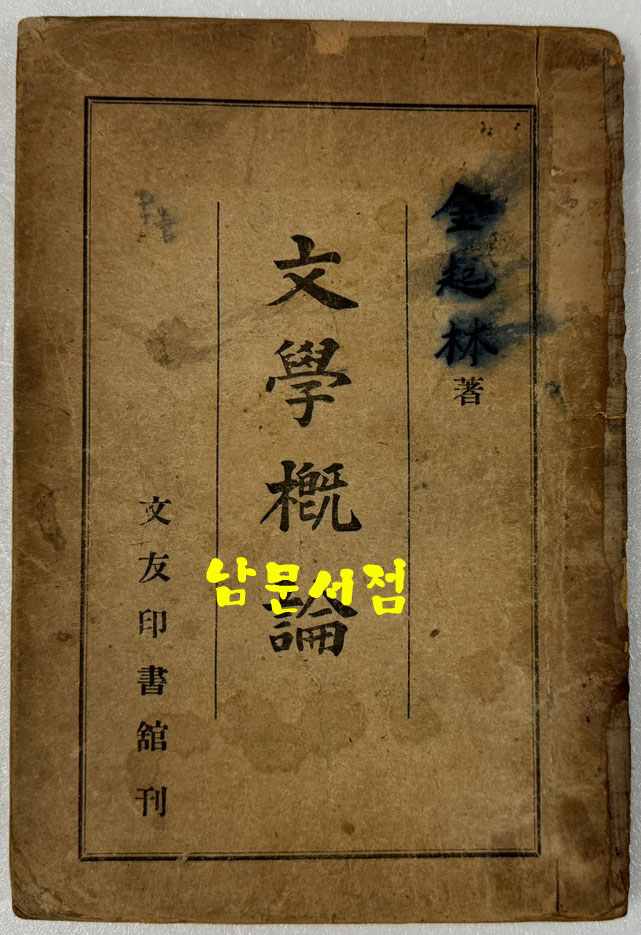 金起林
著
文學概論
文友印書舘刊
남문서점